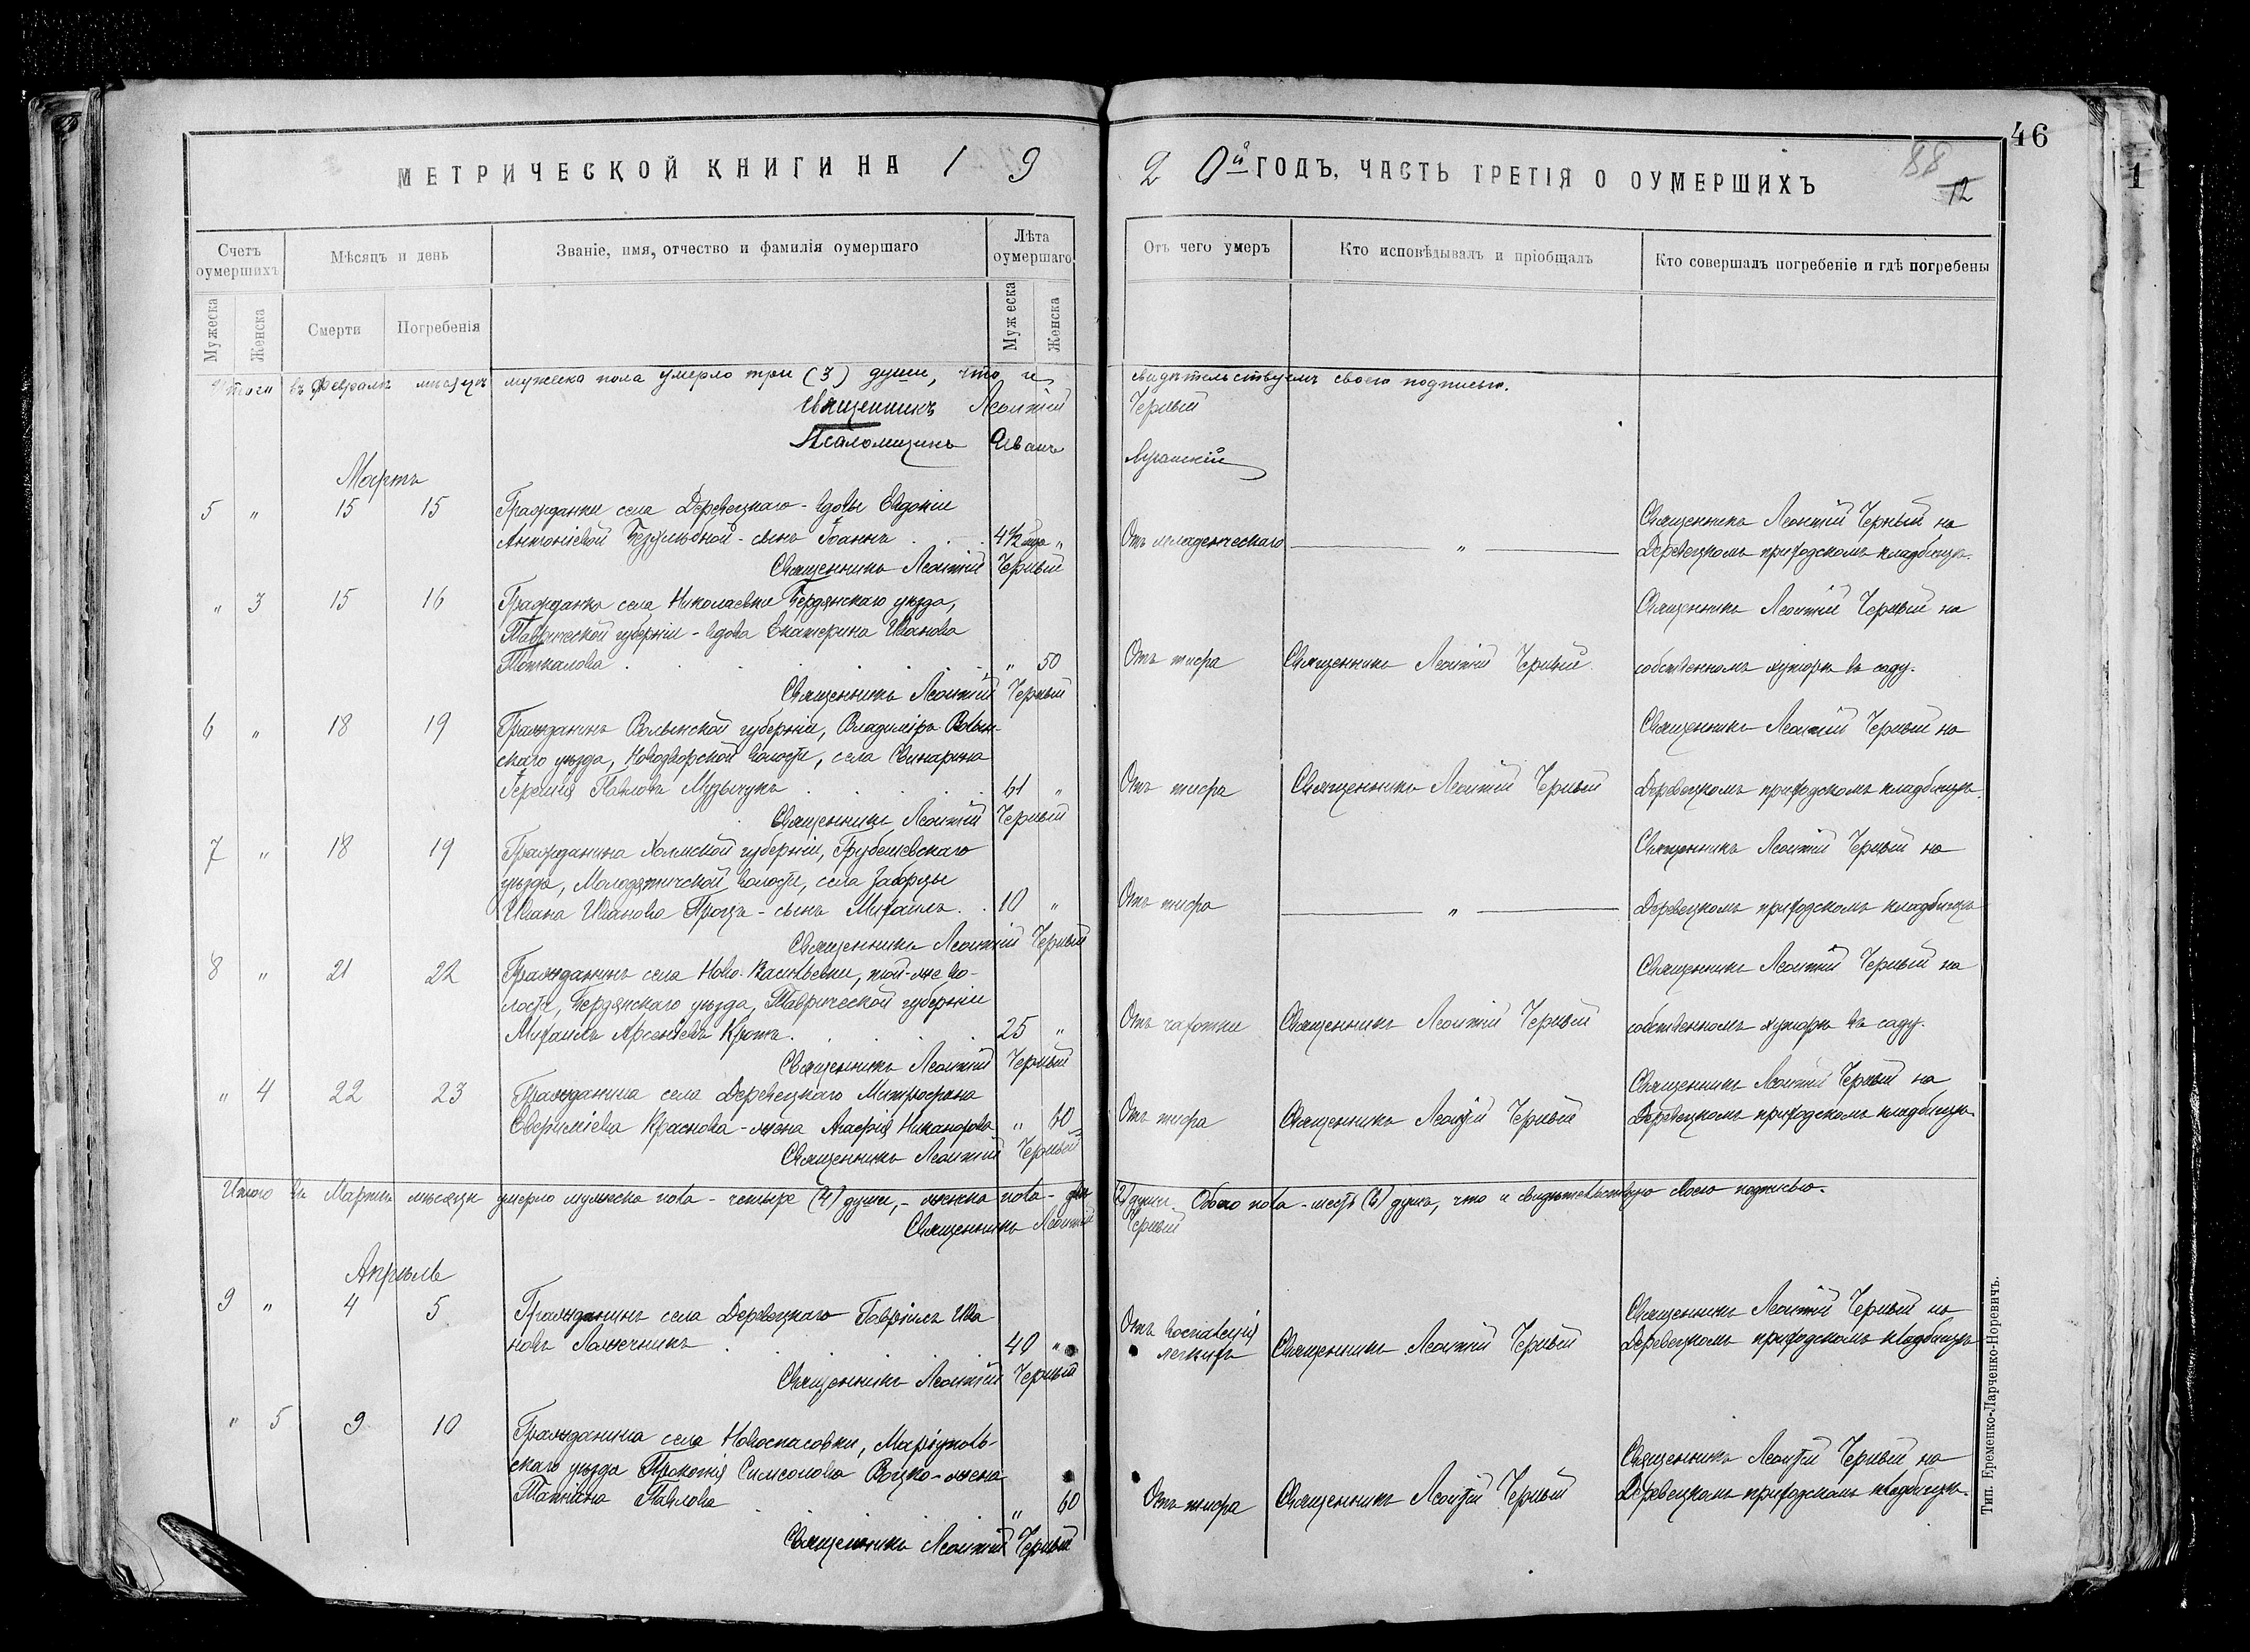 46
1
88
12
МЕТРИЧЕСКОЙ КНИГИ НА 1 9 2 0й ГОДЪ, ЧАСТЬ ТРЕТІЯ О ОУМЕРШИХЪ
Счетъ оумершихъ
Мѣсяцъ и день
Званіе, имя, отчество и фамилія оумершаго
Лѣта оумершаго
Отъ чего умеръ
Кто исповѣдывалъ и пріобщалъ
Кто совершалъ погребеніе и гдѣ погребены
Мужеска
Женска
Смерти
Погребенія
Мужеска
Женска
Итого въ Февралѣ мѣсяцѣ мужеска пола умерло три (3) души, что и свидѣтельствуемъ своею подписью.
Священникъ Леонтій Черный
Псаломщикъ Иванъ
Мартъ
5 " 15 15 Гражданки села Деревецкаго - вдовы Евдокіи
Антоніевой - сынъ Іоаннъ . . . 4½ " Отъ младенческаго — " — Священникъ Леонтій Черный на
Деревецкомъ приходскомъ кладбищѣ.
Священникъ Леонтій Черный
" 3 15 16 Гражданка села Николаевки Бердянскаго уѣзда,
Таврической губерніи - вдова Екатерина Иванова
" 50 Отъ тифа Священникъ Леонтій Черный. Священникъ Леонтій Черный на
собственномъ хуторѣ въ саду.
Священникъ Леонтій Черный
6 " 18 19 Гражданинъ Волынской губерніи, Владиміръ-Волын-
скаго уѣзда, Новодворской волости, села Свинарина
Іеремія Павловъ Музычукъ . . . 61 " Отъ тифа Священникъ Леонтій Черный Священникъ Леонтій Черный на
Деревецкомъ приходскомъ кладбищѣ.
Священникъ Леонтій Черный
7 " 18 19 Гражданина Холмской губерніи, Грубешевскаго
уѣзда, Молодятичской волости, села
Ивана Иванова Процъ - сынъ Михаилъ . . 10 " Отъ тифа — " — Священникъ Леонтій Черный на
Деревецкомъ приходскомъ кладбищѣ
Священникъ Леонтій Черный
8 " 21 22 Гражданинъ села Ново-Васильевки, той-же во-
лости, Бердянскаго уѣзда, Таврической губерніи
Михаилъ Арсеніевъ Кротъ . . . 25 " Отъ чахотки Священникъ Леонтій Черный Священникъ Леонтій Черный на
собственномъ хуторѣ въ саду.
Священникъ Леонтій Черный
" 4 22 23 Гражданина села Деревецкаго Митрофана
Евфиміева Краснова - жена Агафія Никанорова " 60 Отъ тифа Священникъ Леонтій Черный Священникъ Леонтій Черный на
Деревецкомъ приходскомъ кладбищѣ.
Священникъ Леонтій Черный
Итого въ Мартѣ мѣсяцѣ умерло мужеска пола - четыре (4) души, - женска пола - двѣ (2) души. Обоего пола - шесть (6) душъ, что и свидѣтельствую своею подписью.
Священникъ Леонтій Черный
Апрѣль
9 " 4 5 Гражданинъ села Деревецкаго Гавріилъ Ива
новъ . . . 40 " Отъ воспаленія
легкихъ Священникъ Леонтій Черный Священникъ Леонтій Черный на
Деревецкомъ приходскомъ кладбищѣ
Священникъ Леонтій Черный
" 5 9 10 Гражданина села Новоспасовки, Маріуполь-
скаго уѣзда Прокопія Симеонова Воцко - жена
Татіана Павлова . . . " 60 Отъ тифа Священникъ Леонтій Черный Священникъ Леонтій Черный на
Деревецкомъ приходскомъ кладбищѣ.
Священникъ Леонтій Черный
Тип. Еременко-Ларченко-Норевичъ.